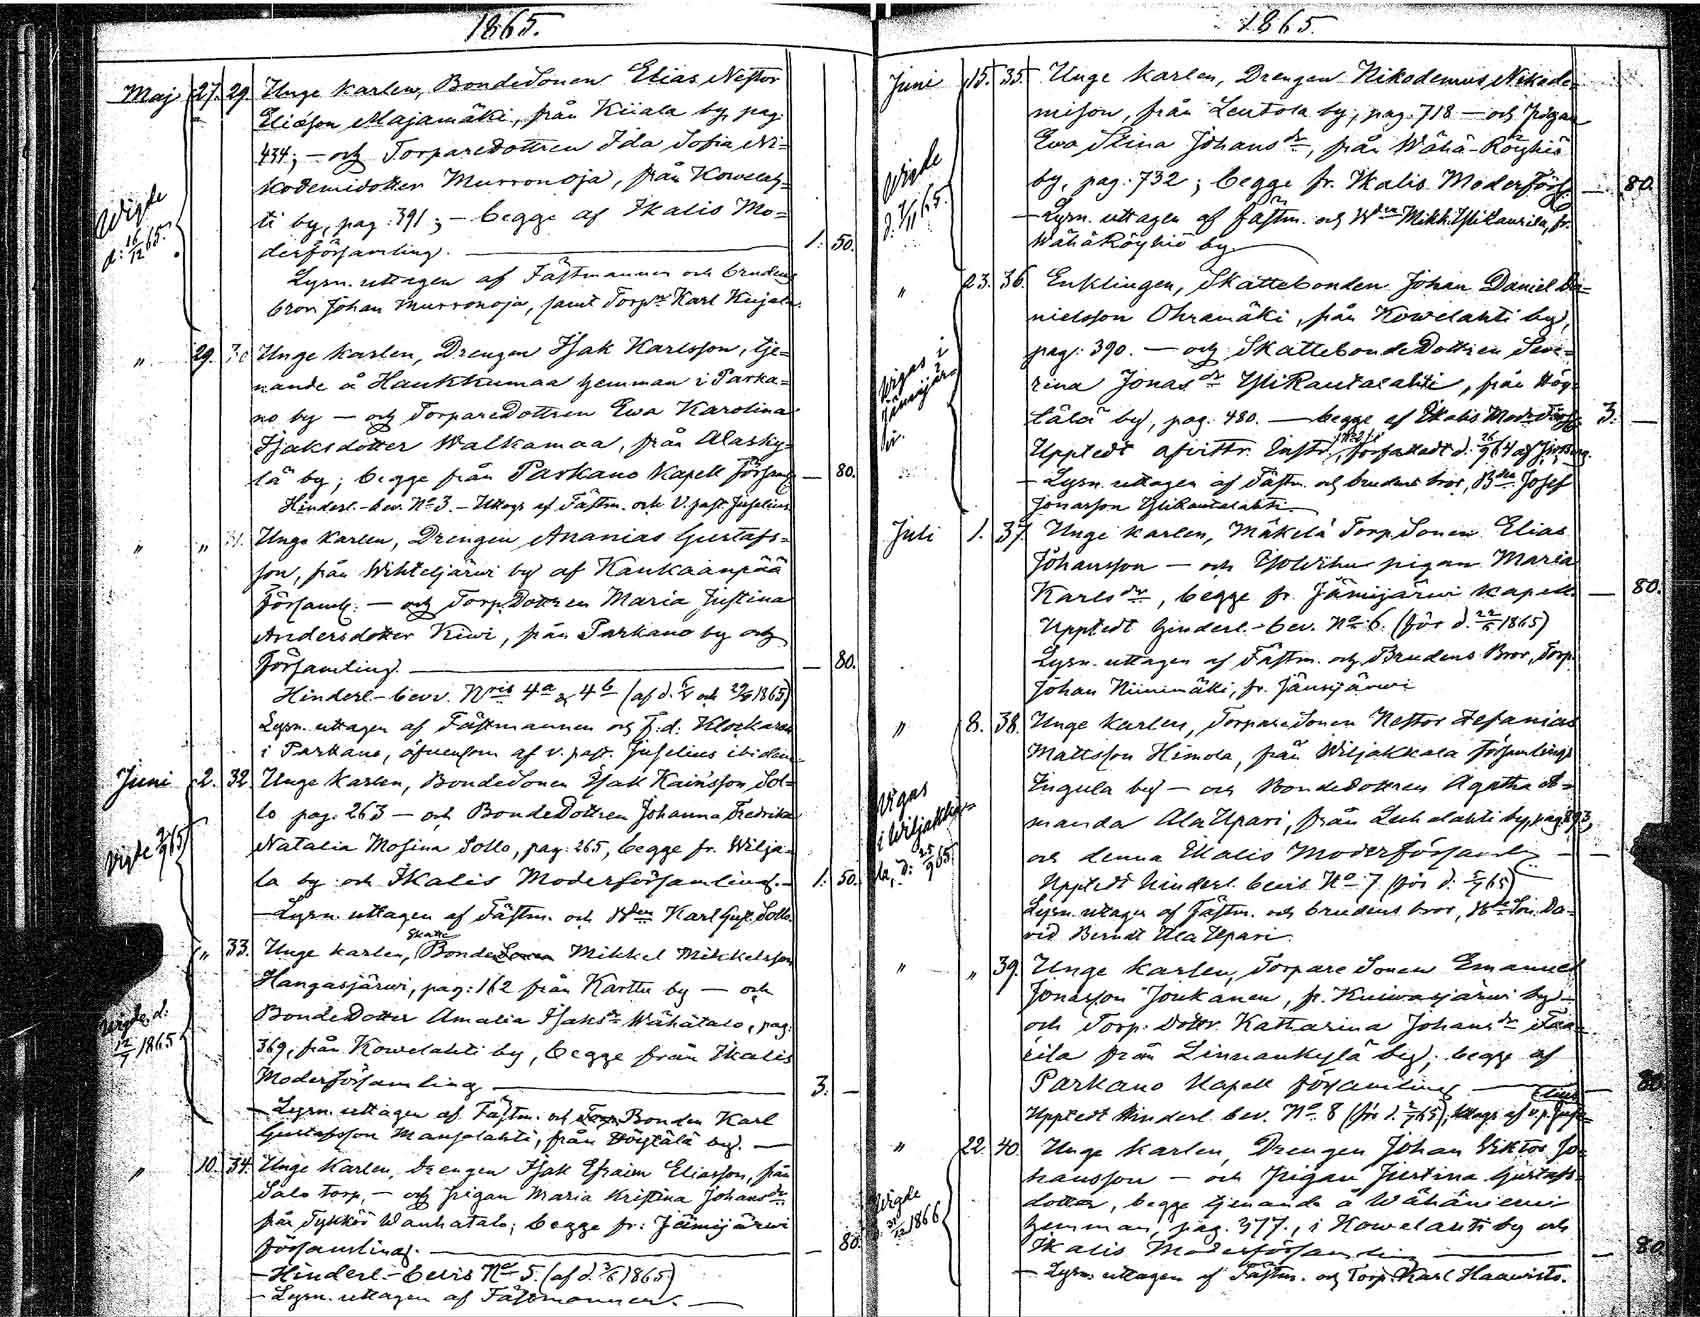 1865.
Maj 27. 29. Unge karlen, BondeSonen Elias Nestor
Eliasson Majamäki, från Kiiala by, pag.
434; — och TorpareDottren Ida Sofia Ni-
kodemidotter Murronoja, från Kowelah-
ti by, pag. 391; — begge af Ikalis Mo-
derförsamling. — 1. 50.
Wigde d: 16/12 65.
Lysn. uttagen af Fästmannen och brudens
bror Johan Murronoja, samt Torp. Karl
" 29. 30 Unge karlen, Drengen Isak Karlsson, tje-
nande å Haukkumaa hemman i Parka-
no by — och TorpareDottren Ewa Karolina
Isaksdotter Walkamaa, från Alasky-
lä by; begge från Parkano Kapell Församl. — 80.
Hinderl.-bev. No 3. — Uttags af Fästm. och V. past. Juselius
" " 31. Unge karlen, Drengen Ananias Gustafs-
son, från Wihteljärwi by af Kankaanpää
Församl. — och Torp.Dottren Maria Justina
Andersdotter Kiwi, från Parkano by och
församling. — — 80.
Hinderl-bevv. Nris 4a & 4b (af d. och 1865)
Lysn. uttagen af Fästmannen och f.d. Klockaren
i Parkano, äfvensom af v. past. Juselius ibidem
Juni 2. 32. Unge karlen, BondeSonen Isak Sol-
lo pag. 263 — och BondeDottren Johanna Fredrika
Natalia Mosina Sollo, pag. 265, begge fr. Wilja-
la by och Ikalis Moderförsamling. — 1. 50.
Vigde 65
— Lysn. uttagen af Fästm. och Karl Gust. Sollo.
" 33. Unge karlen, Skatte BondeSonen Mikkel Mikkelsson
Hangasjärwi, pag. 162 från Karttu by — och
BondeDotter Amalia Isaksdr Wähätalo, pag.
369, från Kowelahti by, begge från Ikalis
Moderförsamling — 3. —
Wigde d: 12/7 1865
— Lysn. uttagen af Fästm. och Torp. Bonden Karl
Gustafsson Mansolahti, från Höytälä by. —
" 10. 34. Unge Karlen, Drengen Isak Efraim Eliasson, från
Salo torp, — och pigan Maria Kristina Johansdr
från Tykköö Wanhatalo; begge fr: Jämijärwi
församling. — — 80.
— Hinderl.-bevis No 5. (af d. 3/6 1865.)
— Lysn. uttagen af Fästmannen. —
1865.
Juni 15. 35. Unge karlen, Drengen Nikodemus Nikode-
misson, från Leutola by, pag. 718 — och pigan
Ewa Stina Johansdr, från Wähä-Röyhiö
by, pag. 732; begge fr. Ikalis Moderförs. — 80.
Wigde d. 65.
— Lysn. uttagen af fästm. och Mikk. Ylikaurila, fr.
WähäRöyhiö by
" 23. 36. Enklingen, Skattebonden Johan Daniel Da-
nielsson Ohramäki, från Kowelahti by,
pag. 390. — och SkattebondeDottren Seve-
rina Jonasdr YliRautalahti, från Höy-
tälä by, pag. 480. — begge af Ikalis Moderförs. 3. —
Vigas i Jämijär-
vi.
Upptedt afvittr. Instr. författadt d. 26/9 64 af
— Lysn. uttagen af Fästm. och brudens bror, Josef
Jonasson YliRautalahti. —
Juli 1. 37. Unge karlen, Mäkelä Torp.Sonen Elias
Johansson — och pigan Maria
Karlsdr, begge fr. Jämijärwi kapell — 80.
Upptedt hinderl.-bev. No 6. (för d. 22/6 1865)
Lysn. uttagen af Fästm. och Brudens Bror, Torp.
Johan Niinimäki, fr. Jämijärwi
" 8. 38. Unge karlen, TorpareSonen Nestor Stefanias
Mattsson Himola, från Wiljakkala församlings
Ingula by — och Bondedottren Agatha A-
manda AlaUpari, från Luhalahti by, pag.
och denna Ikalis Moderförsaml. — — —
Vigas
i Wiljakka-
la, d: 25/9 65
Upptedt hinderl. bevis No 7 (för d. 65)
Lysn. uttagen af Fästm. och brudens bror, Son Da-
vid Berndt AlaUpari.
" " 39. Unge Karlen, TorpareSonen Emanuel
Jonasson Joukanen, fr. Kuiwasjärwi by —
och Torp. Dottr. Katharina Johansdr
från Linnankylä by, begge af
Parkano Kapell församling — 80.
Upptedt Hinderl. bev. No 8 (för d. 65); Uttags af v.p. Juselius
" 22. 40. Unge karlen, Drengen Johan Viktor Jo-
hansson — och Pigan Justina Gustafs-
dotter, begge tjenande å Wähäniemi
hemman, pag. 377., i Kowelahti by och
Ikalis Moderförsamling — — 80.
Wigde 1866
— Lysn. uttagen af Fästm. och Torp. Karl Haawisto.